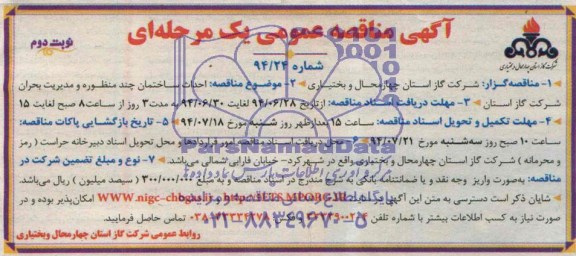 آگهی مناقصه عمومی یک مرحله‌ای
نوبت دوم
شماره ۹۴/۲۴
شرکت گاز استان چهارمحال و بختیاری
۱- مناقصه‌گزار: شرکت گاز استان چهارمحال و بختیاری ۲- موضوع مناقصه: احداث ساختمان چند منظوره و مدیریت بحران
شرکت گاز استان ۳- مهلت دریافت اسناد مناقصه: از تاریخ ۹۴/۰۶/۲۸ لغایت ۹۴/۰۶/۳۰ به مدت ۳ روز از ساعت ۸ صبح لغایت ۱۵
۴- مهلت تکمیل و تحویل اسناد مناقصه: ساعت ۱۵ بعدازظهر روز شنبه مورخ ۹۴/۰۷/۱۸ ۵- تاریخ بازگشایی پاکات مناقصه:
ساعت ۱۰ صبح روز سه‌شنبه مورخ ۹۴/۰۷/۲۱ ۶- محل دریافت اسناد مناقصه امور قراردادها و محل تحویل اسناد دبیرخانه حراست (رمز
و محرمانه) شرکت گاز استان چهارمحال و بختیاری واقع در شهرکرد- خیابان فارابی شمالی می‌باشد. ۷- نوع و مبلغ تضمین شرکت در
مناقصه: به‌صورت واریز وجه نقد و یا ضمانتنامه بانکی به شرح مندرج در اسناد مناقصه و به مبلغ ۳۰۰/۰۰۰/۰۰۰ (سیصد میلیون) ریال می‌باشد.
شایان ذکر است دسترسی به متن این آگهی از سایت امکان‌پذیر بوده و در
صورت نیاز به کسب اطلاعات بیشتر با شماره تلفن تماس حاصل فرمایید.
روابط عمومی شرکت گاز استان چهارمحال وبختیاری
ParsNamadData
فن آوری اطلاعات پارس نماد داده‌ها
پایگاه اطلاع رسانی مناقصه و مزایده
۰۲۱-۸۸۳۴۹۶۷۰-۵